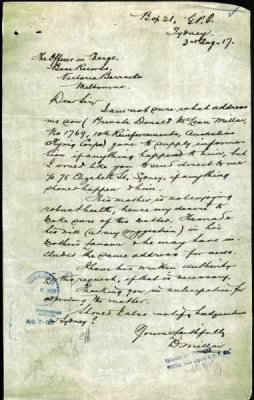 Box 21, G.P.O.
Sydney.
3rd Aug. 17.
The Officer in Charge,
Base Records,
Victoria Barracks
Melbourne.
Dear Sir
I am not sure what address
my son (Private Donald McLean Millar,
No 1769, 10th Reinforcements, Australian
Flying Corps) gave to supply inform-
ation if anything happened to him, but
I would like you to send direct to me
to 78 Elizabeth St, Sydney, if anything
should happen to him.
His mother is not enjoying
robust health, hence my wish to
take care of the matter. He made
his will (army suggestion) in his
mother's favour & he may have in-
cluded the same address for news.
I have his written authority
for this request, if that is necessary.
Thanking you in anticipation for
attending the matter.
Should I also notify headquarters
in Sydney?
Yours faithfully
D. Millar